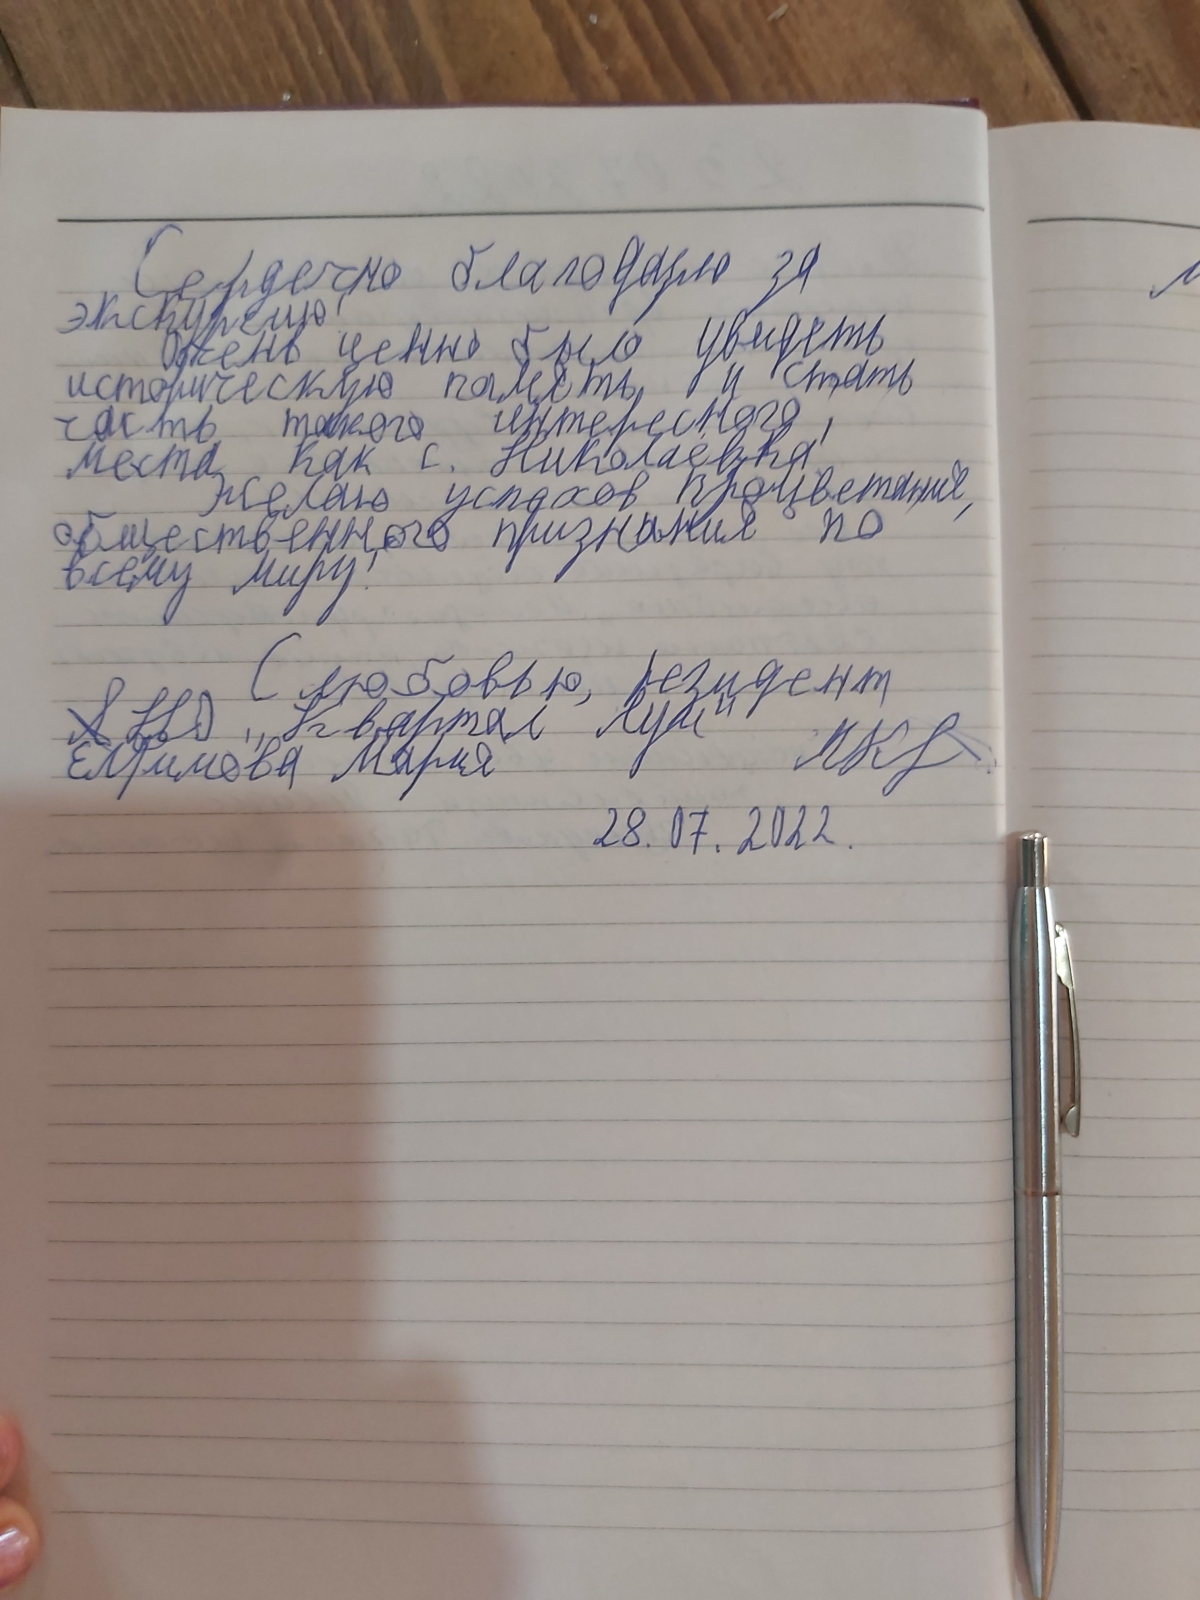 Сердечно благодарю за
экскурсию!
Очень ценно было увидеть
историческую память и стать
часть такого интересного
места, как с. Николаевка!
Желаю успехов процветания,
общественного признания по
всему миру!
С любовью, резидент
"Квартал Луи"
Мария
28.07.2022.